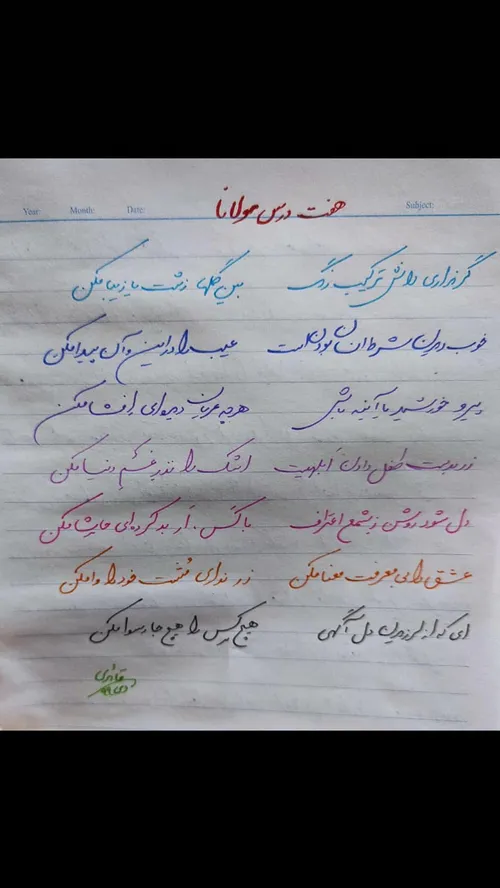 Year: Month: Date: Subject:
هفت درس مولانا
گر نداری دانش ترکیب رنگ بین گلها زشت یا زیبا مکن
خوب دیدن شرط انسان بودن است عیب را در این و آن پیدا مکن
پیرو خورشید یا آیینه باش هرچه عریان دیده‌ای افشا مکن
زر بدست طفل دادن ابلهیست اشک را نذر غم دنیا مکن
دل شود روشن ز شمع اعتراف با کس ار بد کرده‌ای حاشا مکن
عشق را بی معرفت معنا مکن زر نداری مشت خود را وا مکن
ای که از لرزیدن دل آگهی هیچ کس را هیچ جا رسوا مکن